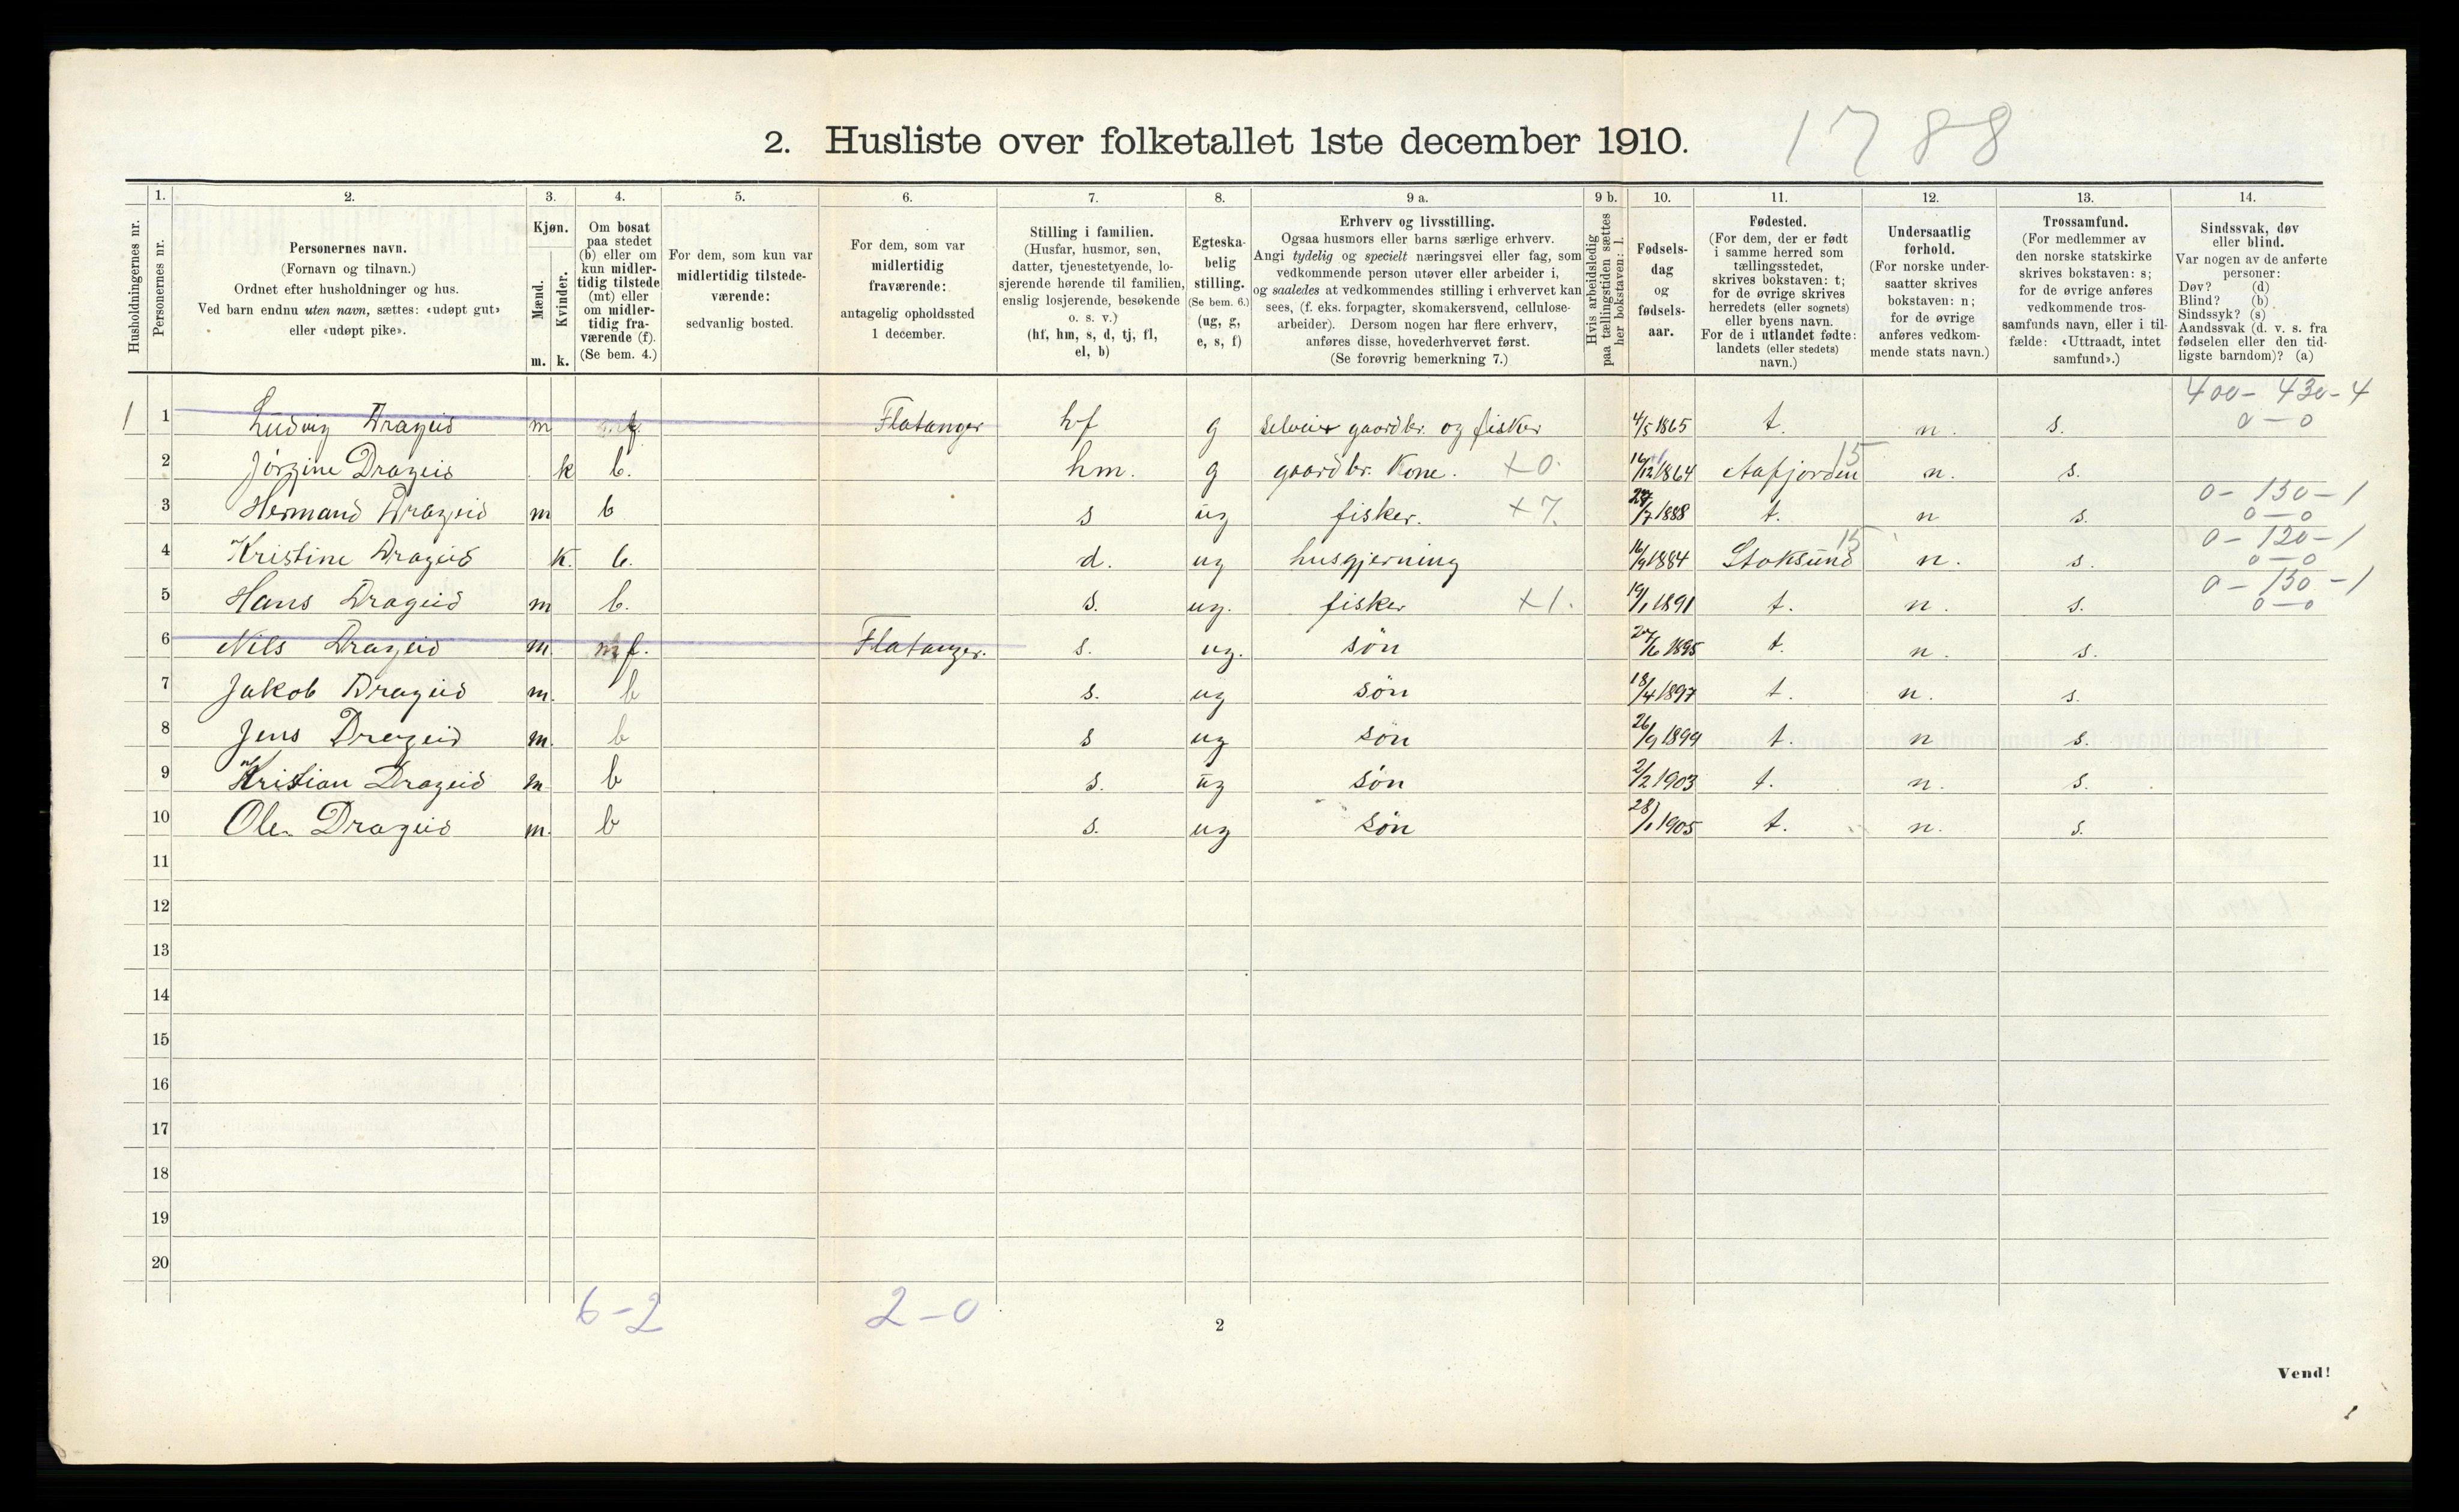 2. Husliste over folketallet 1ste december 1910. 1788
Husholdningernes nr.
1. Personernes nr.
2. Personernes navn. (Fornavn og tilnavn.) Ordnet efter husholdninger og hus. Ved barn endnu uten navn, sættes: «udøpt gut» eller «udøpt pike».
3. Kjøn. Mænd. m. Kvinder. k.
4. Om bosat paa stedet (b) eller om kun midlertidig tilstede (mt) eller om midlertidig fraværende (f). (Se bem. 4.)
5. For dem, som kun var midlertidig tilstedeværende: sedvanlig bosted.
6. For dem, som var midlertidig fraværende: antagelig opholdssted 1 december.
7. Stilling i familien. (Husfar, husmor, søn, datter, tjenestetyende, losjerende hørende til familien, enslig losjerende, besøkende o. s. v.) (hf, hm, s, d, tj, fl, el, b)
8. Egteskabelig stilling. (Se bem. 6.) (ug, g, e, s, f)
9 a. Erhverv og livsstilling. Ogsaa husmors eller barns særlige erhverv. Angi tydelig og specielt næringsvei eller fag, som vedkommende person utøver eller arbeider i, og saaledes at vedkommendes stilling i erhvervet kan sees, (f. eks. forpagter, skomakersvend, cellulosearbeider). Dersom nogen har flere erhverv, anføres disse, hovederhvervet først. (Se forøvrig bemerkning 7.)
9 b. Hvis arbeidsledig paa tællingstiden sættes her bokstaven: l.
10. Fødselsdag og fødselsaar.
11. Fødested. (For dem, der er født i samme herred som tællingsstedet, skrives bokstaven: t; for de øvrige skrives herredets (eller sognets) eller byens navn. For de i utlandet fødte: landets (eller stedets) navn.)
12. Undersaatlig forhold. (For norske undersaatter skrives bokstaven: n; for de øvrige anføres vedkommende stats navn.)
13. Trossamfund. (For medlemmer av den norske statskirke skrives bokstaven: s; for de øvrige anføres vedkommende trossamfunds navn, eller i tilfælde: «Uttraadt, intet samfund».)
14. Sindssvak, døv eller blind. Var nogen av de anførte personer: Døv? (d) Blind? (b) Sindssyk? (s) Aandssvak (d. v. s. fra fødselen eller den tidligste barndom)? (a)
400 - 430 - 4
1 1 Ludvig Drageid m f. Flatanger hf g selveier gaardbr. og fisker 4/5 1865 t. n. s. 0 - 0
2 Jørgine Drageid k b. hm. g gaardbr. Kone. +0. 16/12 1864 Aafjorden 15 n. s.
3 Hermand Drageid m b s ug fisker. +7. 27/7 1888 t. n s. 0 - 150 - 1 0 - 0
4 Kristine Drageid k. b. d. ug husgjerning 16/9 1884 Stoksund 15 n. s. 0 - 120 - 1 0 - 0
5 Hans Drageid m b. s. ug. fisker +1. 19/1 1891 t. n. s. 0 - 130 - 1 0 - 0
6 Nils Drageid m. mf. Flatanger. s. ug. søn 27/6 1895 t. n. s.
7 Jakob Drageid m. b s. ug søn 18/4 1897 t. n. s.
8 Jens Drageid m. b s ug søn 26/9 1899 t. n s.
9 Kristian Drageid m b s. ug søn 2/2 1903 t. n. s.
10 Ole Drageid m. b s. ug søn 28/1 1905 t. n. s.
11
12
13
14
15
16
17
18
19
20
6 - 2 2 - 0
2
Vend!